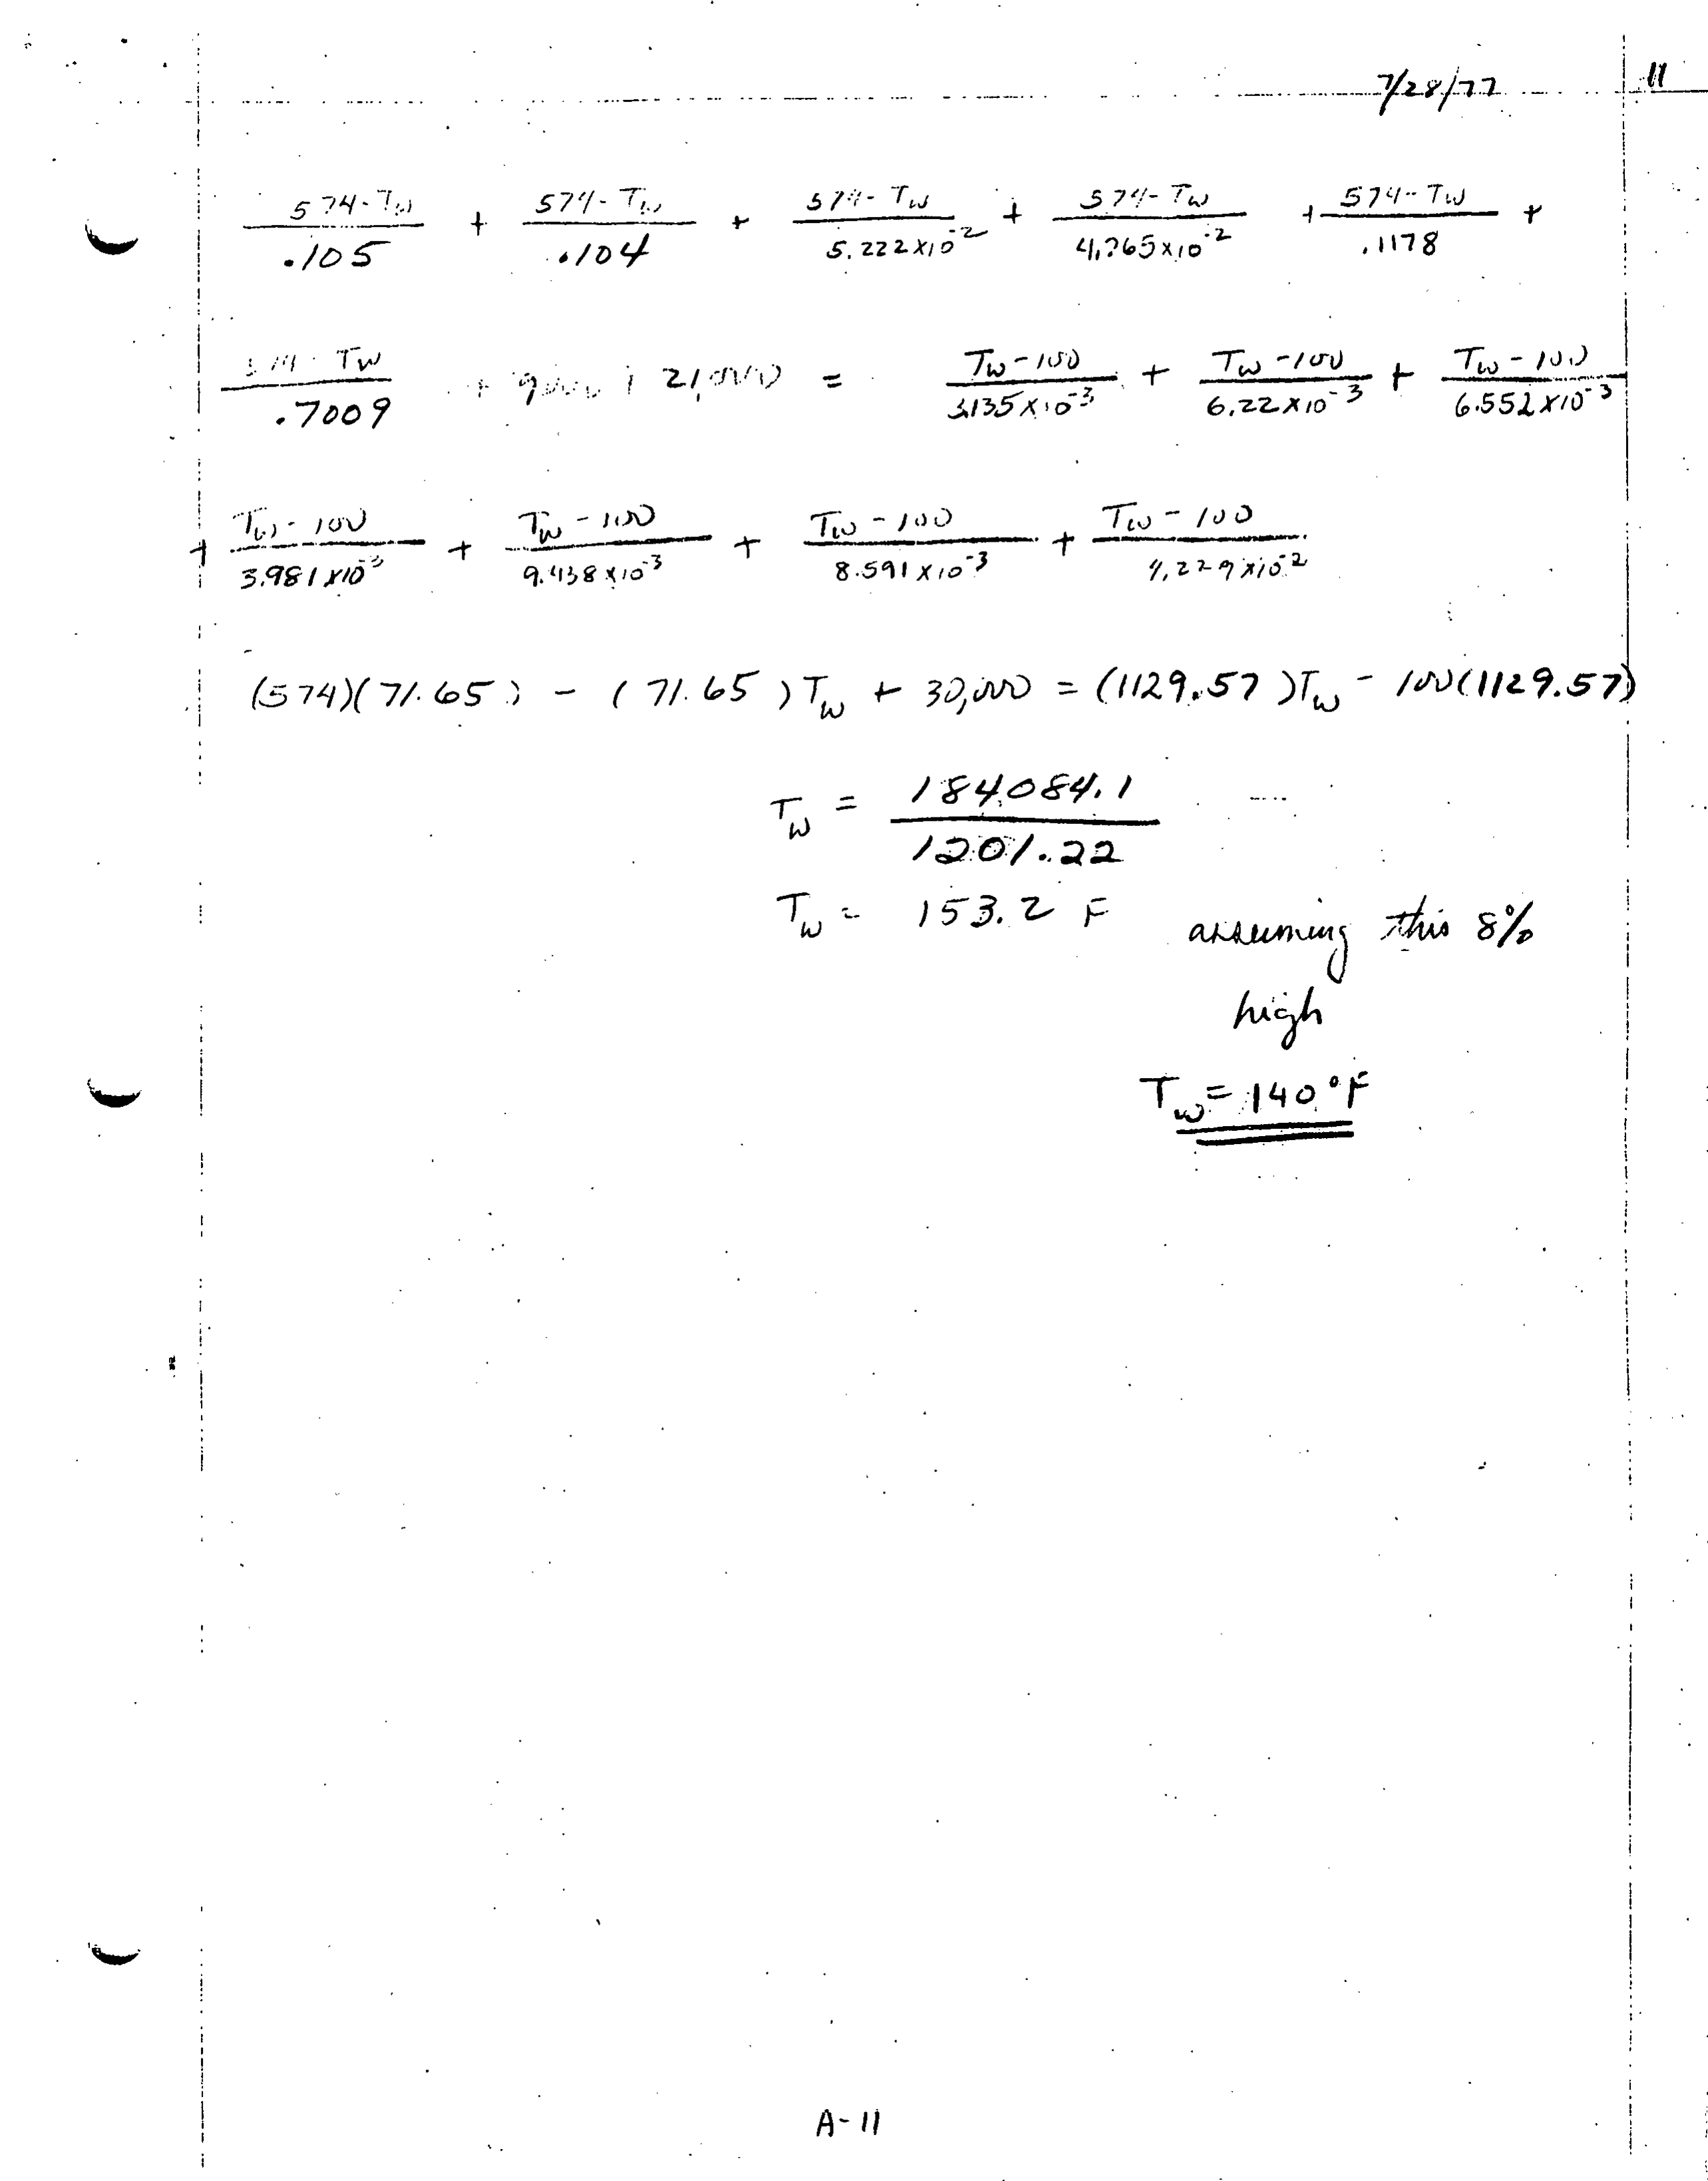 7/28/77 11
574-Tw/.105 + 574-Tw/.104 + 574-Tw/5.222x10^-2 + 574-Tw/4.765x10^-2 + 574-Tw/.1178 +
574-Tw/.7009 + 9000 + 21,000 = Tw-100/3.135x10^-3 + Tw-100/6.22x10^-3 + Tw-100/6.552x10^-3
+ Tw-100/3.981x10^-3 + Tw-100/9.438x10^-3 + Tw-100/8.591x10^-3 + Tw-100/4.229x10^-2
(574)(71.65) - (71.65)Tw + 30,000 = (1129.57)Tw - 100(1129.57)
Tw = 184084.1/1201.22
Tw = 153.2 F assuming this 8%
high
Tw = 140°F
A-11